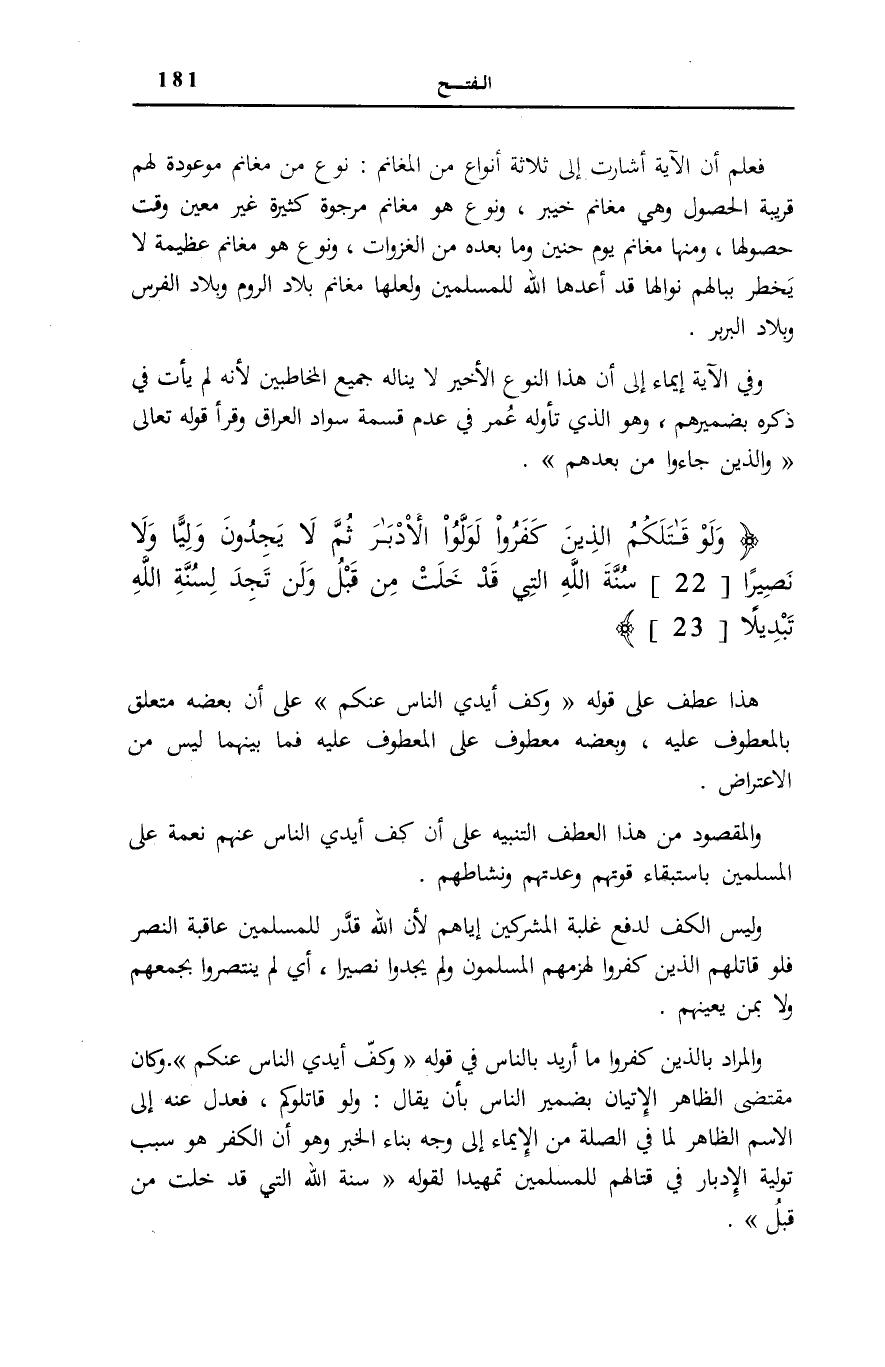 الفتـــح 181
فعلم أن الآية أشارت إلى ثلاثة أنواع من المغانم : نوع من مغانم موعودة لهم
قريبة الحصول وهي مغانم خيبر ، ونوع هو مغانم مرجوة كثيرة غير معين وقت
حصولها ، ومنها مغانم يوم حنين وما بعده من الغزوات ، ونوع هو مغانم عظيمة لا
يَخطر ببالهم نوالها قد أعدها الله للمسلمين ولعلها مغانم بلاد الروم وبلاد الفرس
وبلاد البربر .
وفي الآية إيماء إلى أن هذا النوع الأخير لا يناله جميع المخاطبين لأنه لم يأت في
ذكره بضميرهم ، وهو الذي تأوله عُمر في عدم قسمة سواد العراق وقرأ قوله تعالى
« والذين جاءوا من بعدهم » .
﴿ وَلَوْ قَـٰتَلَكُمُ الذِينَ كَفَرُواْ لَوَلَّوُاْ الْأَدْبَـٰرَ ثُمَّ لَا يَجِدُونَ وَلِيًّا وَلَا
نَصِيرًا [ 22 ] سُنَّةَ اللَّهِ التِي قَدْ خَلَتْ مِن قَبْلُ وَلَن تَجِدَ لِسُنَّةِ اللَّهِ
تَبْدِيلًا [ 23 ] ﴾
هذا عطف على قوله « وكف أيدي الناس عنكم » على أن بعضه متعلق
بالمعطوف عليه ، وبعضه معطوف على المعطوف عليه فما بينهما ليس من
الاعتراض .
والمقصود من هذا العطف التنبيه على أن كف أيدي الناس عنهم نعمة على
المسلمين باستبقاء قوتهم وعدتهم ونشاطهم .
وليس الكف لدفع غلبة المشركين إياهم لأن الله قدَّر للمسلمين عاقبة النصر
فلو قاتلهم الذين كفروا لهزمهم المسلمون ولم يجدوا نصيرا ، أي لم ينتصروا بجمعهم
ولا بمن يعينهم .
والمراد بالذين كفروا ما أريد بالناس في قوله « وكفّ أيدي الناس عنكم ».وكان
مقتضى الظاهر الإتيان بضمير الناس بأن يقال : ولو قاتلوكم ، فعدل عنه إلى
الاسم الظاهر لما في الصلة من الإيماء إلى وجه بناء الخبر وهو أن الكفر هو سبب
تولية الإدبار في قتالهم للمسلمين تمهيدا لقوله « سنة الله التي قد خلت من
قبلُ » .